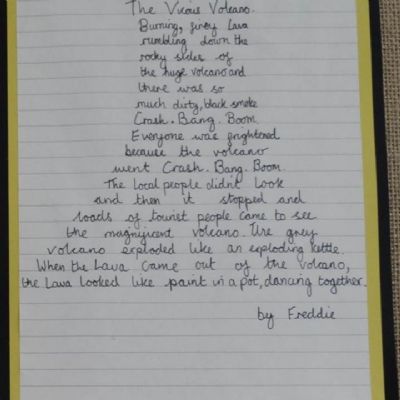 The Vicious Volcano.
Burning, firey Lava
rumbling down the
rocky sides of
the huge volcano and
there was so
much dirty, black smoke
Crash. Bang. Boom.
Everyone was frightened
because the volcano
went Crash. Bang. Boom.
The Local people didn't Look
and then it stopped and
loads of tourist people came to see
the magnificent volcano. The grey
volcano exploded like an exploding kettle.
When the Lava came out of the volcano,
the Lava looked like paint in a pot, dancing together.
by Freddie